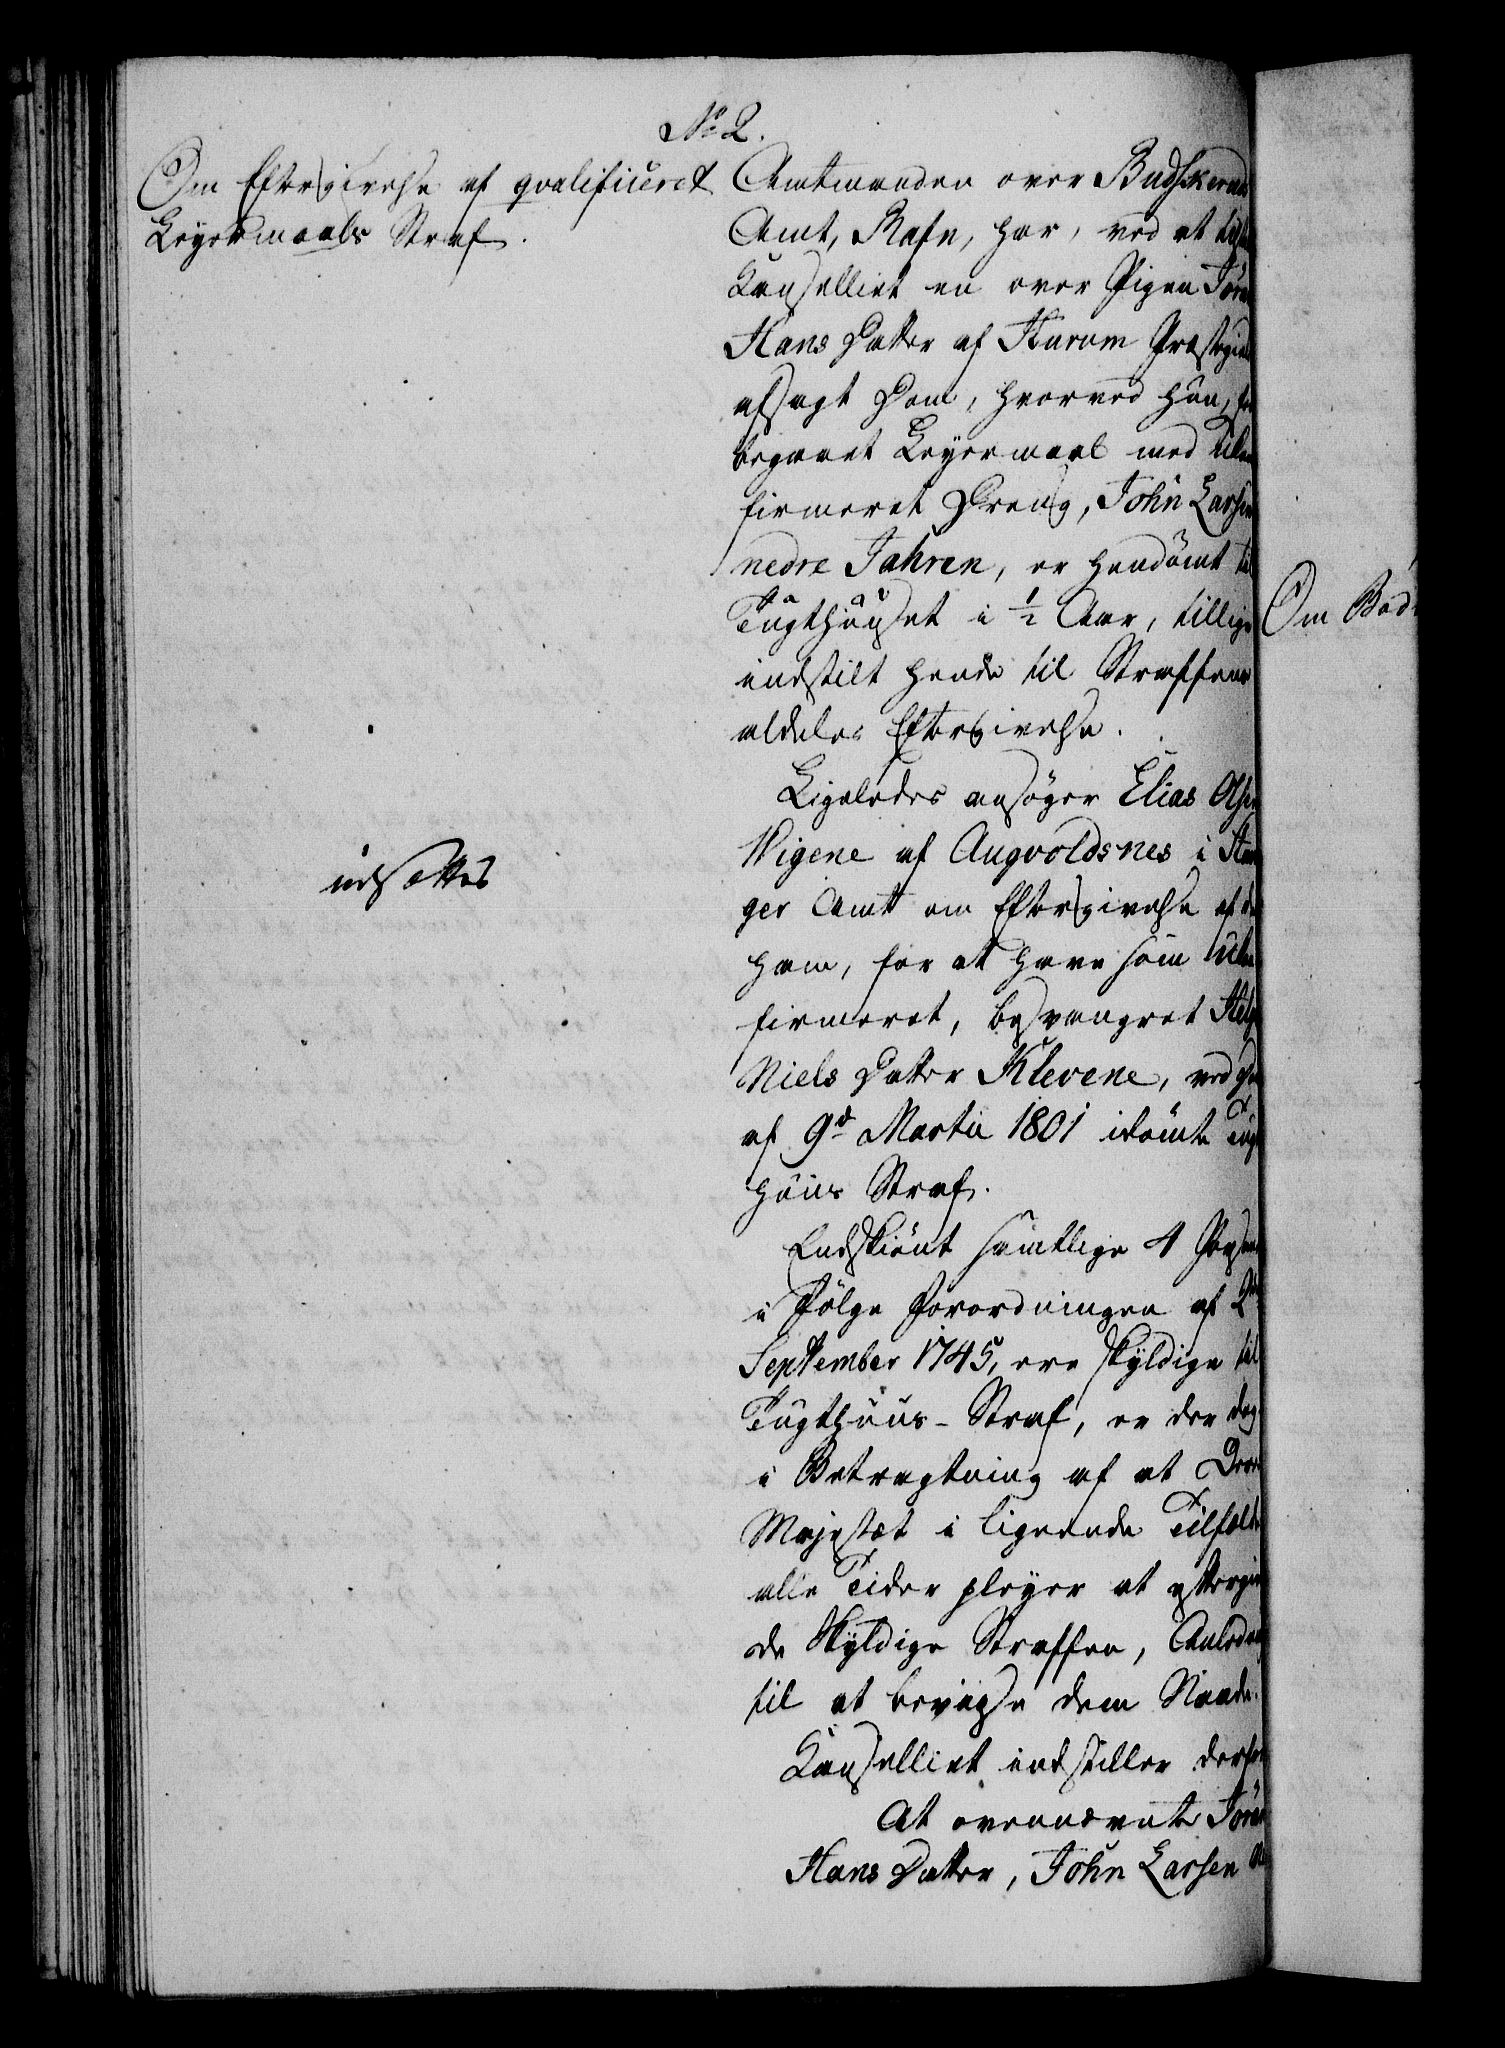 No 2.
Om Eftergivelse af qvalificeret
Leyermaals Straf.
Amtmanden over Budskerud
Amt, Rafn, har, ved at
Kanselliet en over Pigen
Hans Datter af Hurum Præstegield
afsagt Dom, hvorved hun, for
begaaet Leyermaal med
firmeret Dreng, John Larsen
nedre Jahren, er hendömt til
Tugthuuset i 1/2 Aar, tillige
indstilt hende til Straffens
aldeles Eftergivelse.
Ligeledes ansöger Elias Olsen
Wigene af Augvoldsnes i
ger Amt om Eftergivelse af
ham, for at have som
firmeret, besvangret
Niels Datter Klevene, ved
af 9d Martii 1801 idömte
huus Straf.
udsættes
Endskiönt samtlige 4
i Fölge Forordningen af
September 1745, ere skyldige til
Tugthuus-Straf, er der dog
i Betragtning af at
Majestæt i lignende
alle Tider pleyer at
de skyldige Straffen,
til at bevirke dem Naade.
Kanselliet indstiller derfor
At ovennævnte
Hans Datter, John Larsen
Om